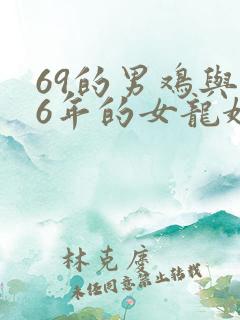 69的男鸡與
6年的女龍
林克
未任同意禁止转载